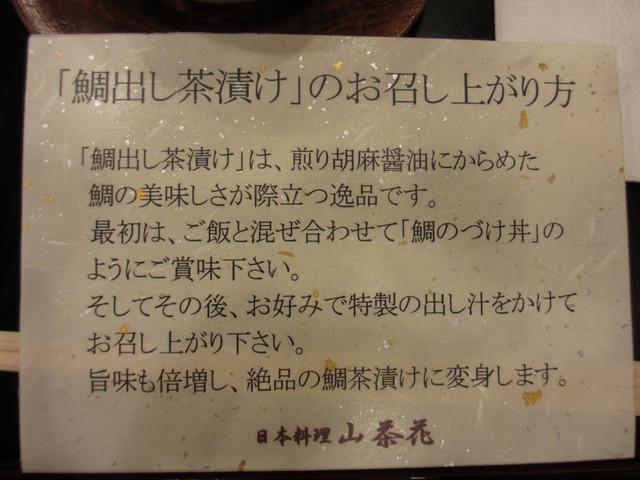 「鯛出し茶漬け」のお召し上がり方
「鯛出し茶漬け」は、煎り胡麻醤油にからめた
鯛の美味しさが際立つ逸品です。
最初は、ご飯と混ぜ合わせて「鯛のづけ丼」の
ようにご賞味下さい。
そしてその後、お好みで特製の出し汁をかけて
お召し上がり下さい。
旨味も倍増し、絶品の鯛茶漬けに変身します。
日本料理 山茶花